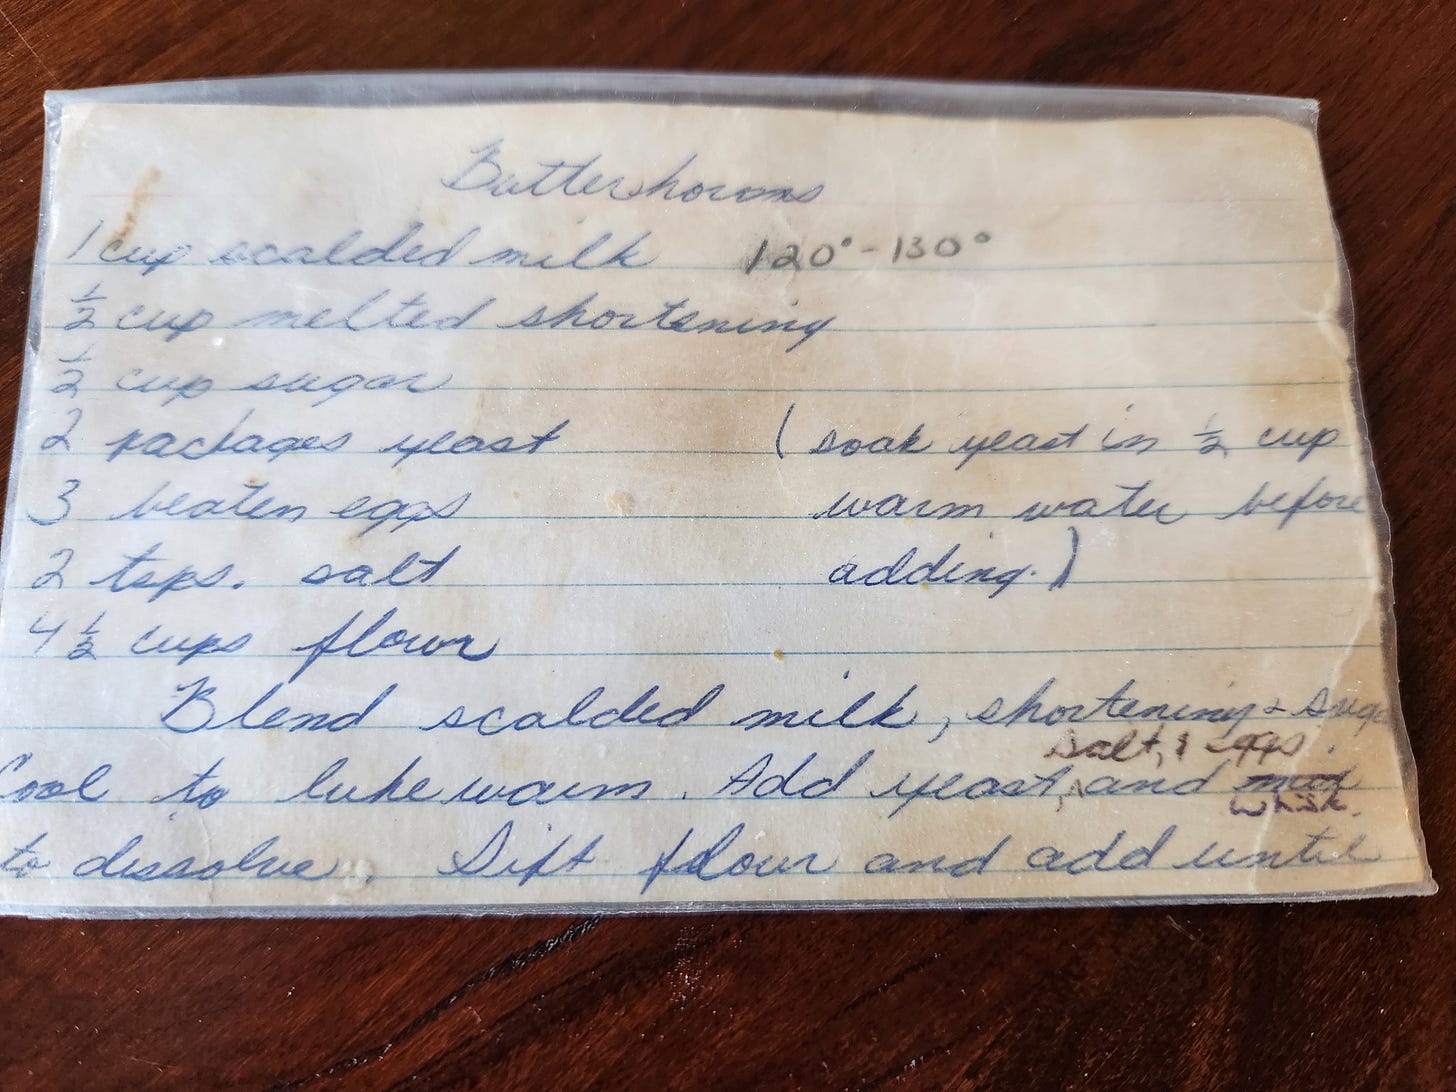 Butterhorns
1 cup scalded milk 120°-130°
½ cup melted shortening
½ cup sugar
2 packages yeast (soak yeast in ½ cup
3 beaten eggs warm water before
2 tsps. salt adding.)
4 ½ cups flour
Blend scalded milk, shortening &
salt, & eggs
Cool to lukewarm. Add yeast, ^ and mix
whisk.
to dissolve. Sift flour and add until